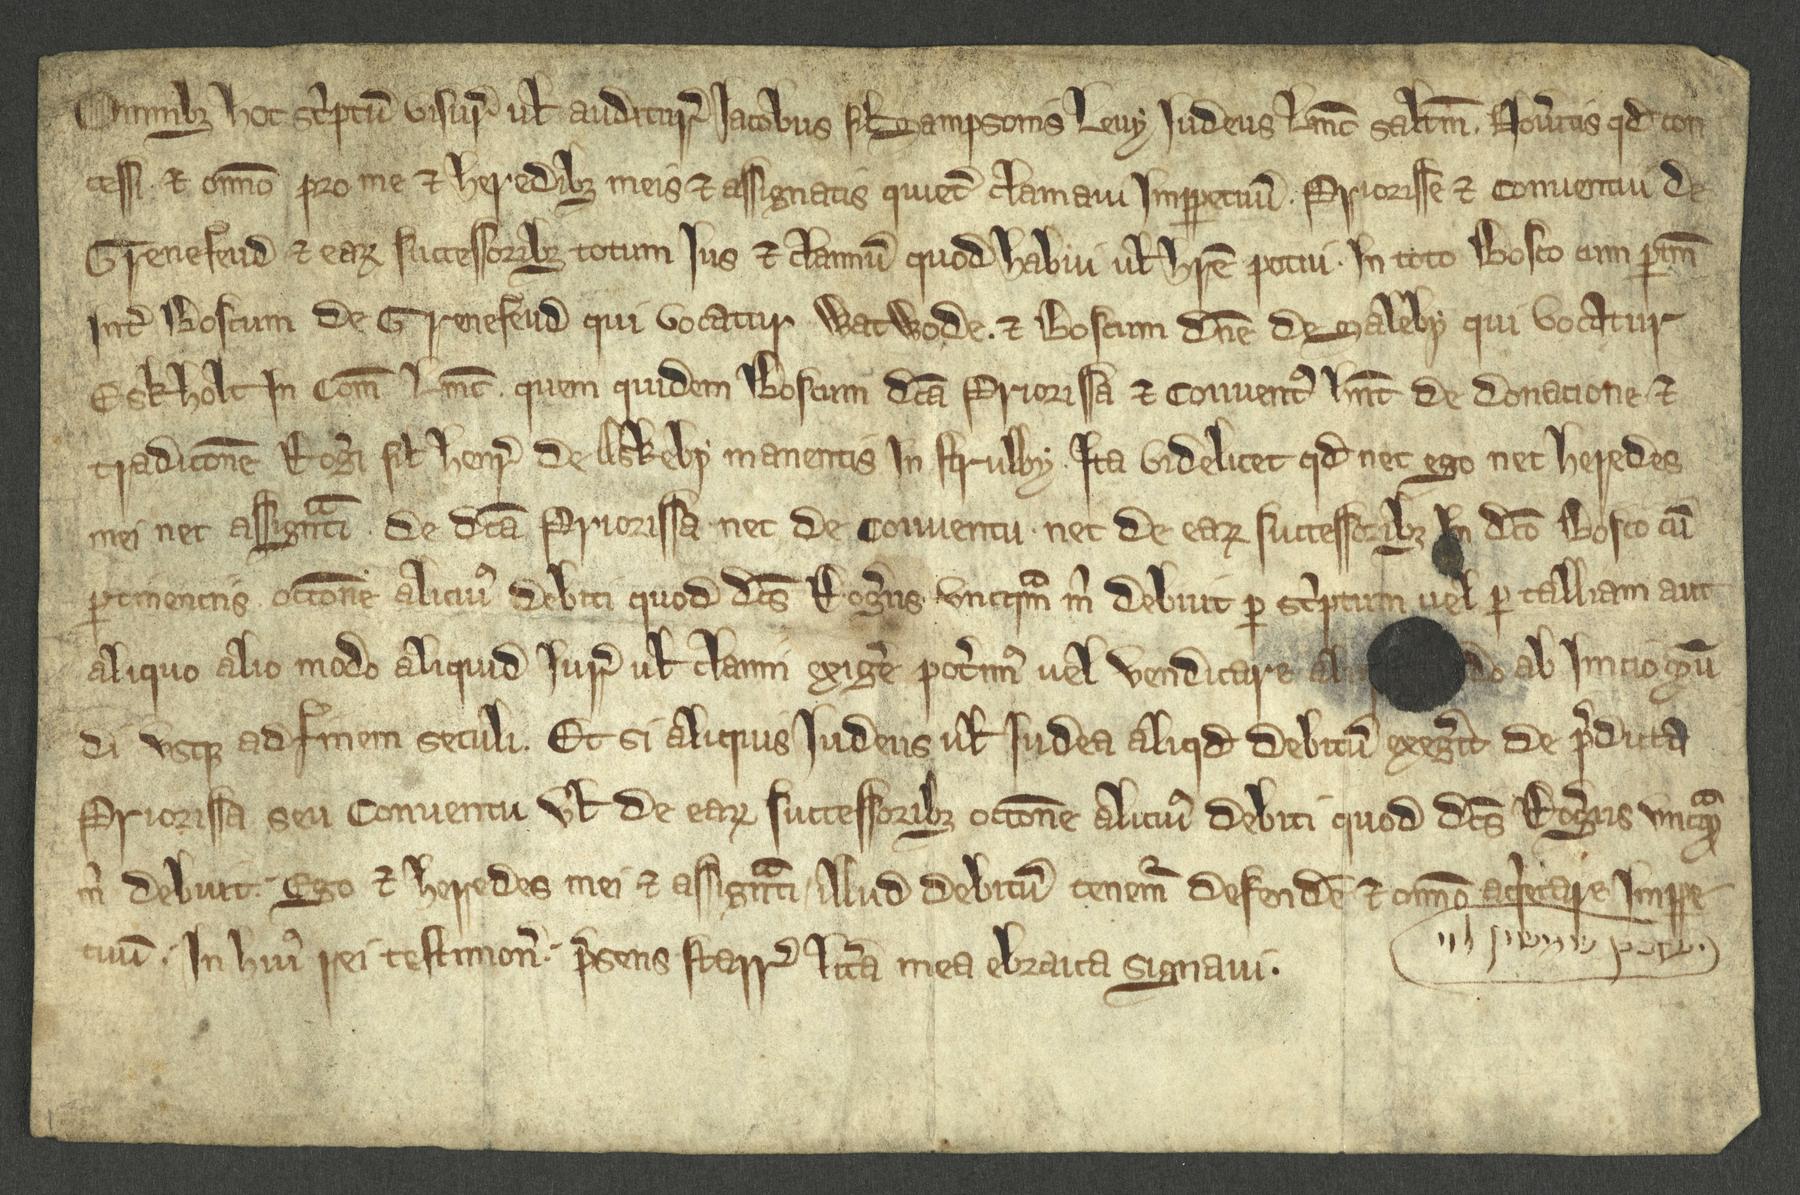 Omnibȝ hoc sc̾ptū visur̾ ul̵ auditur̾ Jacobus fil̵ Sampsonis Levy Judeus Linc̄ salt̄m. Nov̾itis qd̵ con
cessi. ⁊ om̄īo pro me ⁊ heredibȝ meis ⁊ assignatis quiet̾ clamavi Imꝑpetuū. Priorisse ⁊ Conventui de
Grenefeud ⁊ eaꝝ successoribȝ totum Jus ⁊ clamiū quod habui ul̵ hr̄e potui. In toto Bosco cum ꝑtin̄
Int̾ Boscum de Grenefeud qui vocatur Watwode. ⁊ Boscum dn̄e de Haleby qui vocatur
Eskholt In Com̄ Linc̄. quem quidem Boscum dc̄a Priorissa ⁊ Convent᾽ hn̄t de donacione ⁊
tradicōne Rog̾i fil̵ henr̾ de Askeby manentis In strubby. Ita videlicet qd̵ nec ego nec heredes
mei nec assignᵃti. de dc̄a Priorissa nec de Conventu. nec de eaꝝ successoribȝ In dc̄o Bosco cū
ꝑtinenciis occōne alicui᾽ debiti quod dc̄s Rog̾us uncqᵃm m̾ debuit ꝑ sc̾ptum vel ꝑ talliam aut
aliquo alio modo aliquid Jur̾ ul̵ clamii exig̾e pot̾im᾽ vel vendicare ab Inicio mū
di usqȝ ad finem seculi. Et si aliquis Judeus ul̵ Judea aliqd̵ debitū exeg̾it de p̾dicta
Priorissa seu Conventu Vl̵ de eaꝝ successoribȝ occōne alicui᾽ debiti quod dc̄s Rog̾us uncqᵃ
m̾ debuit. Ego ⁊ heredes mei ⁊ assignᵃti illud debitū tenem̾ defendē ⁊ om̄īo acq̾etare Imꝑpe
tuū. In hui᾽ rei testimon̾. p̾sens starr̾ lit̾a mea ebraica signavi.